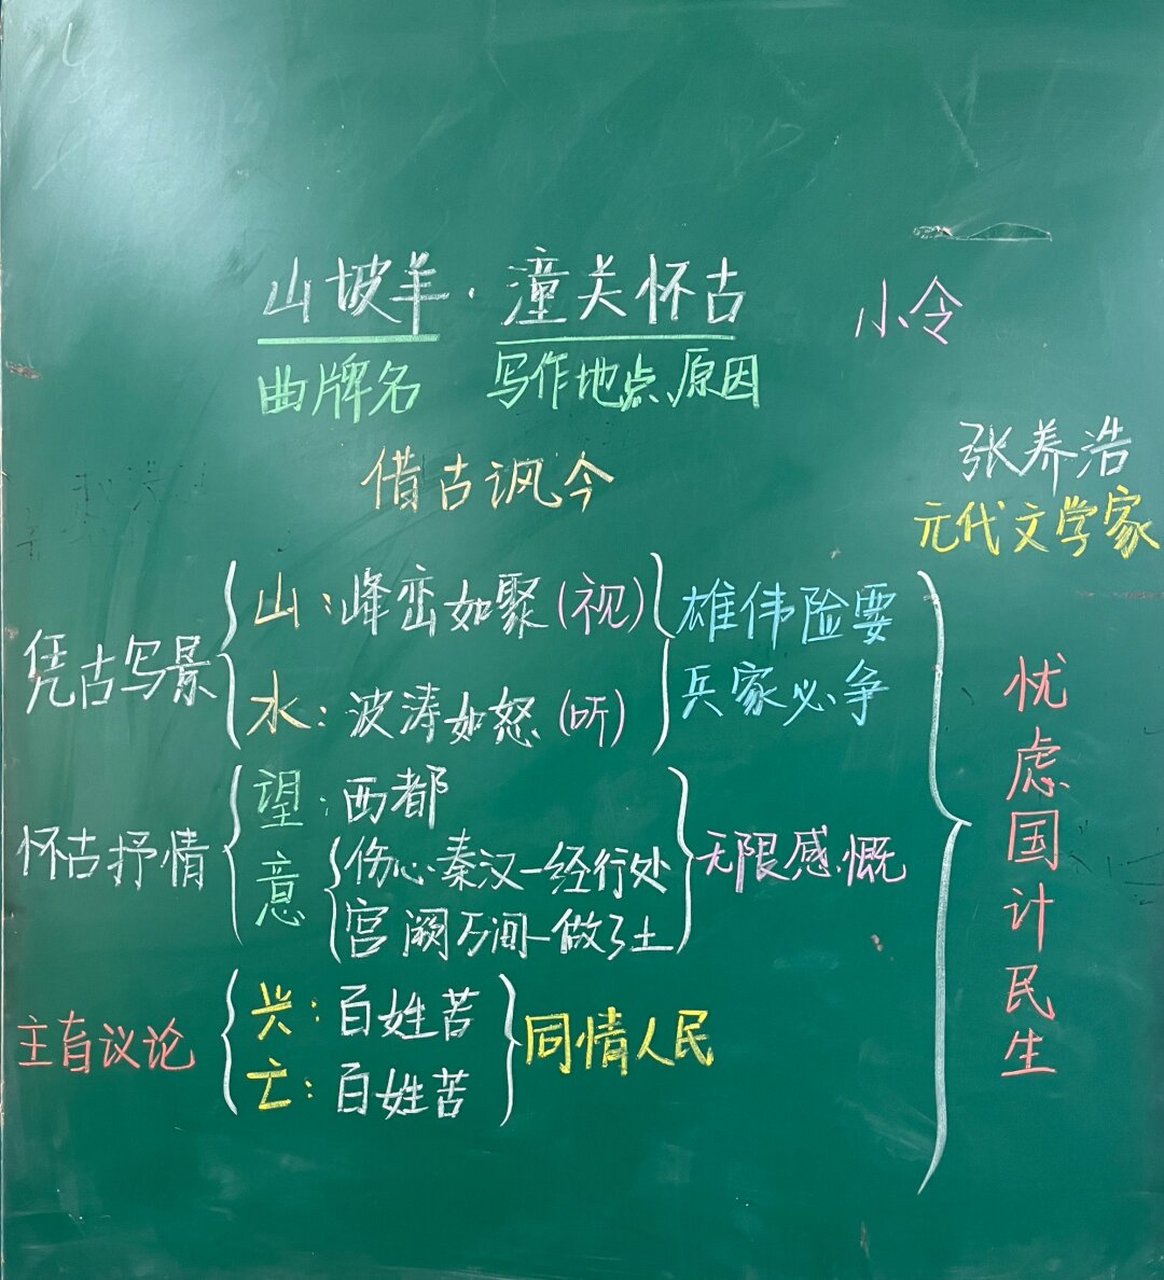 山坡羊·潼关怀古 小令
曲牌名 写作地点、原因
借古讽今
张养浩
元代文学家
凭古写景
山:峰峦如聚(视)
水:波涛如怒(听)
雄伟险要
兵家必争
怀古抒情
望:西都
意
伤心秦汉一经行处
宫阙万间一做了土
无限感慨
主旨议论
兴:百姓苦
亡:百姓苦
同情人民
忧虑国计民生